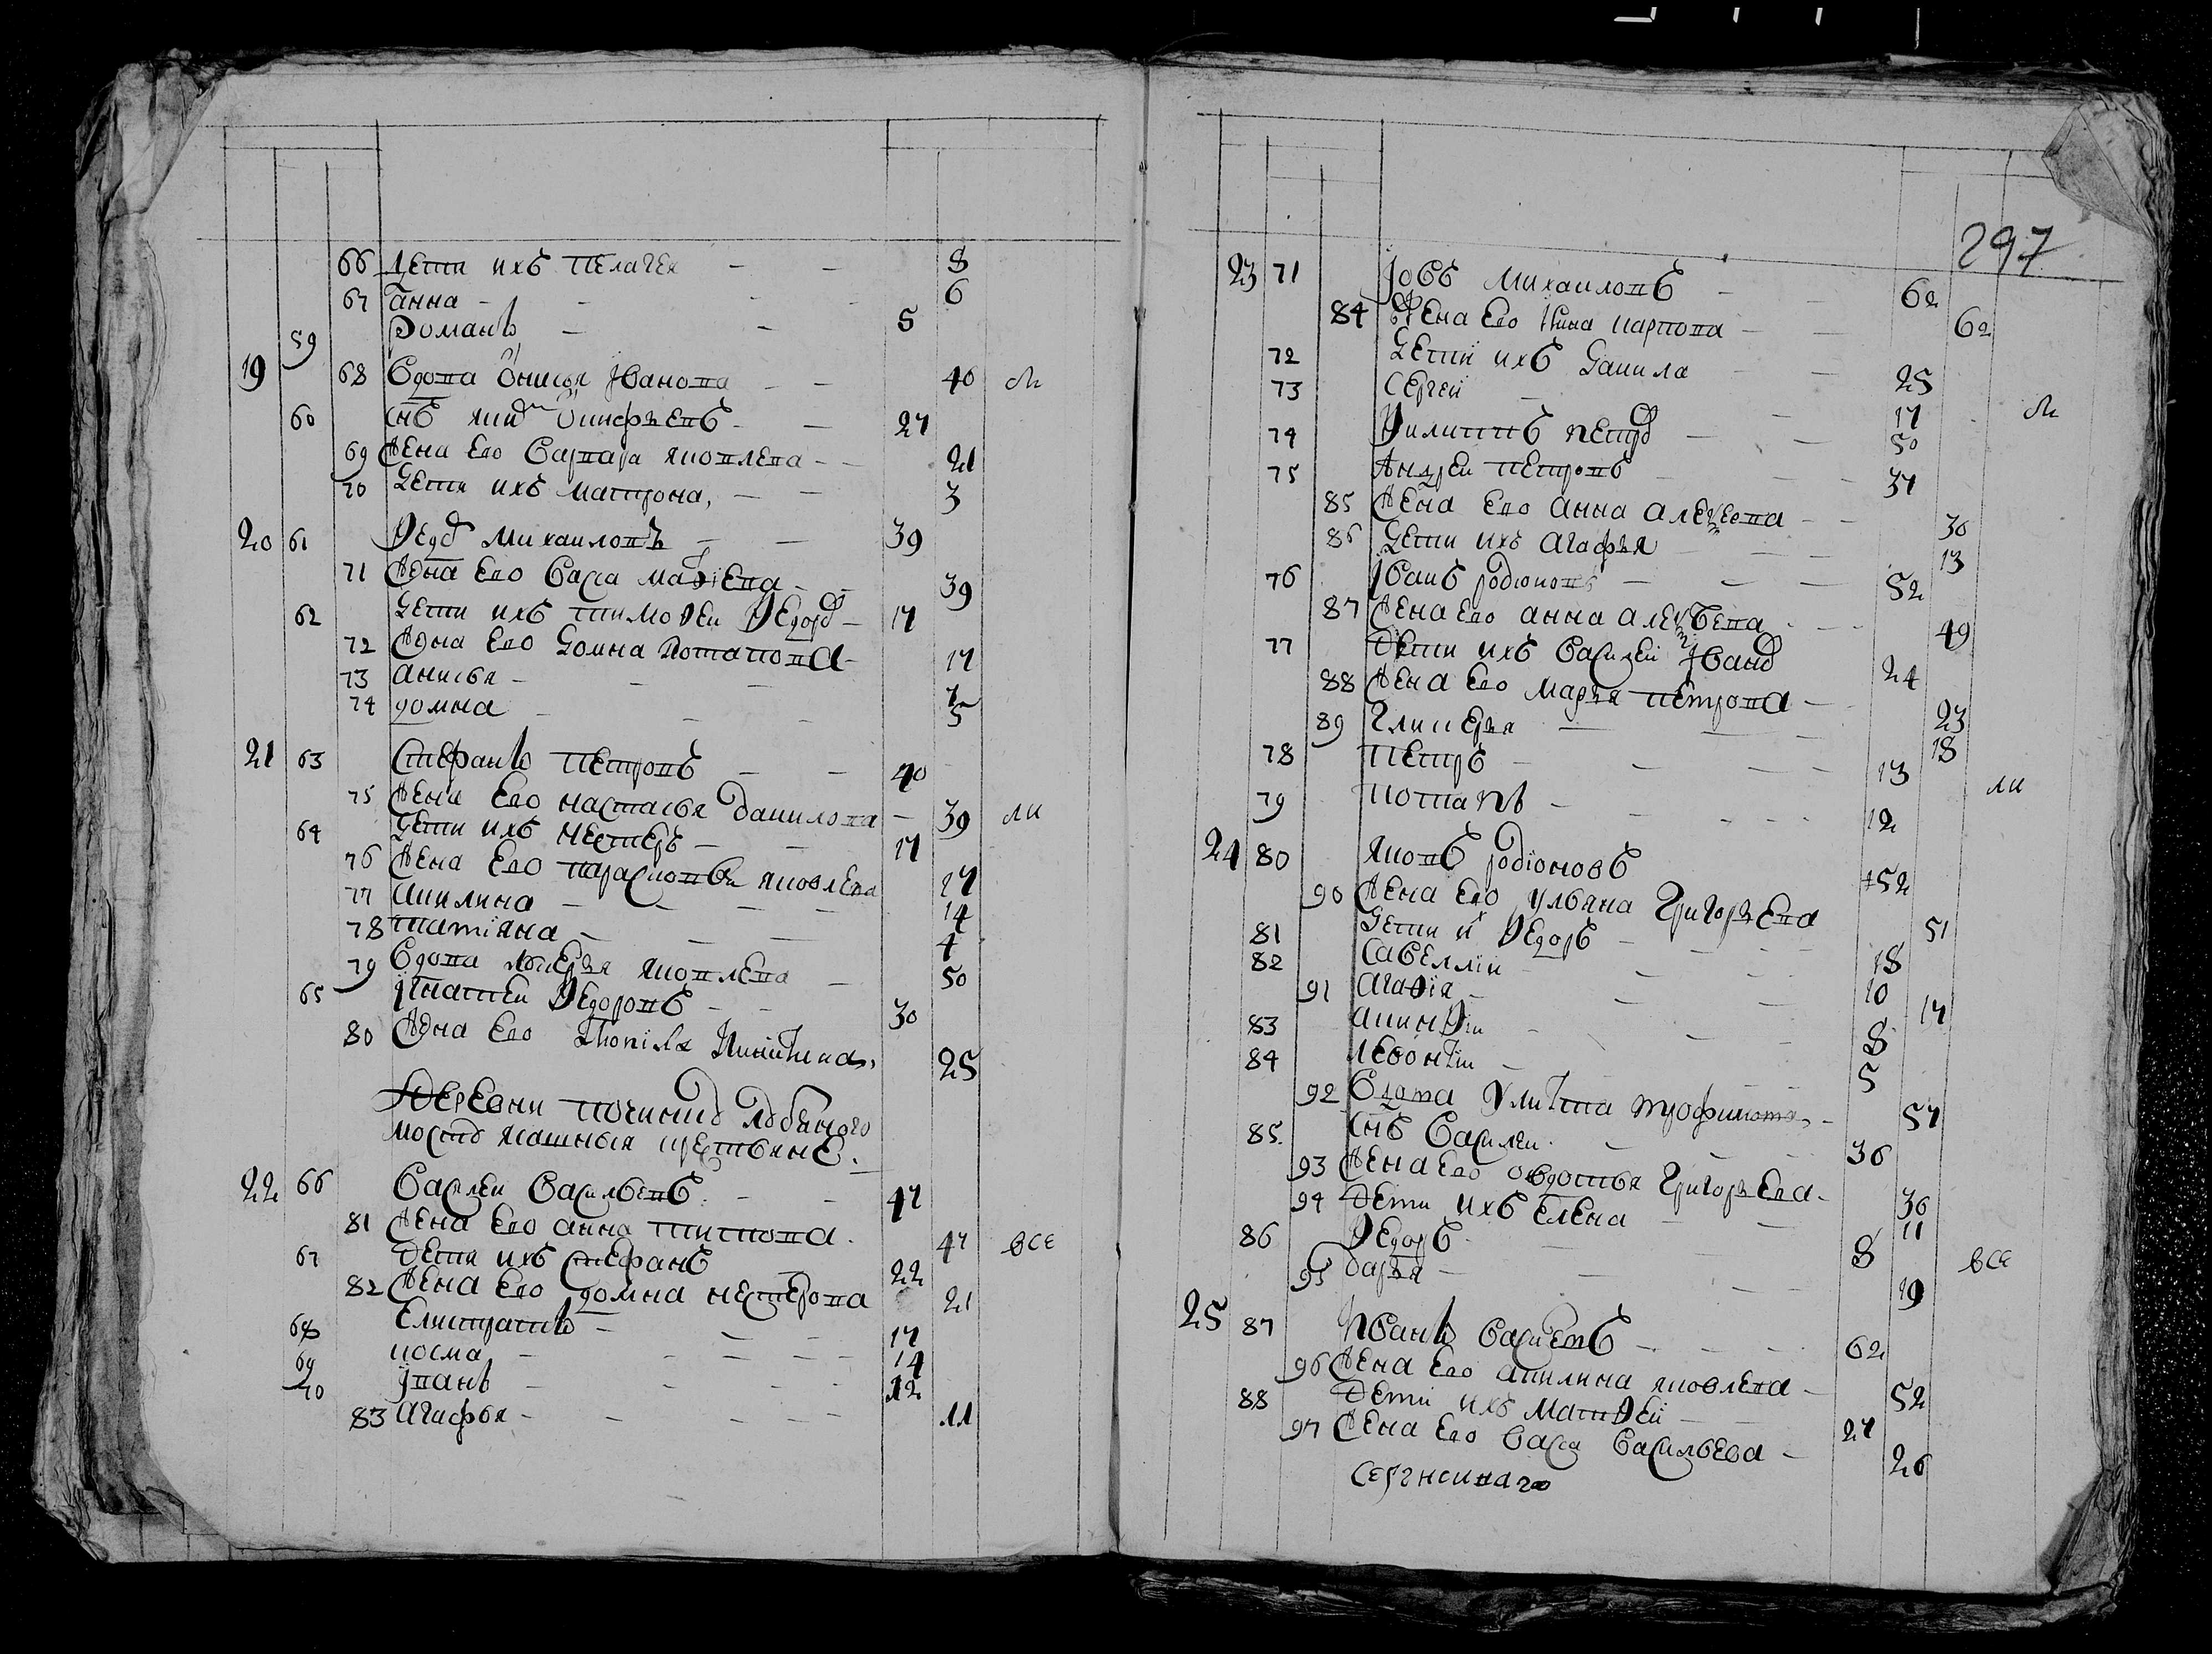 66 Дети ихъ Пелагея - - 8
67 анна - - - 6
59 Романъ - - 5
19 68 Вдова Онисья Иванова - - 40 ли
60 снъ яки Онифръевъ - - 27
69 Жена Ево Варвара яковлева - - 21
70 Дети ихъ матрона, - - 3
20 61 Ѳедо Михаиловъ - - 39
71 Жена Ево Васса Маѳіева - - 39
62 Дети ихъ тимоѳеи Ѳедоро - 17
72 Жена Ево Домна Потапова - 17
73 анисья - - - 7
74 домна - - - 5
21 63 Стефанъ Петровъ - - 40
75 Жена Ево настасья данилова - 39 ли
64 Дети ихъ нестеръ - - 17
76 Жена Ево парасковья яковлева 17
77 акилина - - - 14
78 татіяна - - - 4
79 Вдова яковлева - 50
65 Игнатеи Ѳедоровъ - - 30
80 Жена Ево Никитина, 25
Деревни починко Лобаного
мосто яшныя крестьяне.
22 66 Василеи Васильевъ. - - 47
81 Жена Ево анна титова. 47 все
67 Дети ихъ стефанъ - 22
82 Жена Ево домна нестерова 21
68 Елистратъ - - - 17
69 косма - - - 14
70 Іванъ - - - 12
83 агафья - - - 11
297
23 71 Іовъ Михаиловъ - - 62
84 Жена Ево Нина карпова - - 62
72 Дети ихъ Данила - - 25
73 Сергей - - 17 ли
74 Ѳилипъ петро - - 50
75 Андреи петровъ - - 37
85 Жена Ево анна алеѯеева - - 30
86 Дети ихъ агафъя - - 13
76 Іванъ родіоновъ - - 52
87 Жена Ево анна алеѯъева - - 49
77 Дети ихъ Василеи Івано 24
88 Жена Ево маръя петрова - 23
89 Гликеръя - - 18
78 петръ - - - 13
79 потапъ - - - 12 ли
24 80 яковъ родіоновъ 52
90 Жена Ево ульяна Григоръева 51
81 Дети их Ѳедоръ - - 18
82 Савеллій - - 10
91 агаѳія - - 17
83 акинѳіи - - 8
84 левонтіи - - 5
92 Вдова улитта трофимова - 57
85. снъ Василеи. - - 36
93 Жена Ево овдотья Григоръева - 36
94 Дети ихъ Елена - - 11
86 Ѳедоръ - - 8 все
95 даръя - - 19
25 87 Иванъ Васиевъ - - 62
96 Жена Ево акилина яковлева - 52
88 Дети ихъ матѳеи - - 27
97 Жена Ево васса Васильева - 26